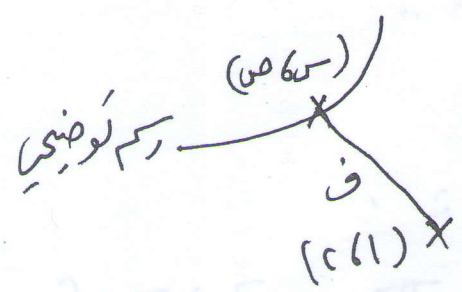 (س، ص)
رسم توضيحي
ف
(١، ٢)